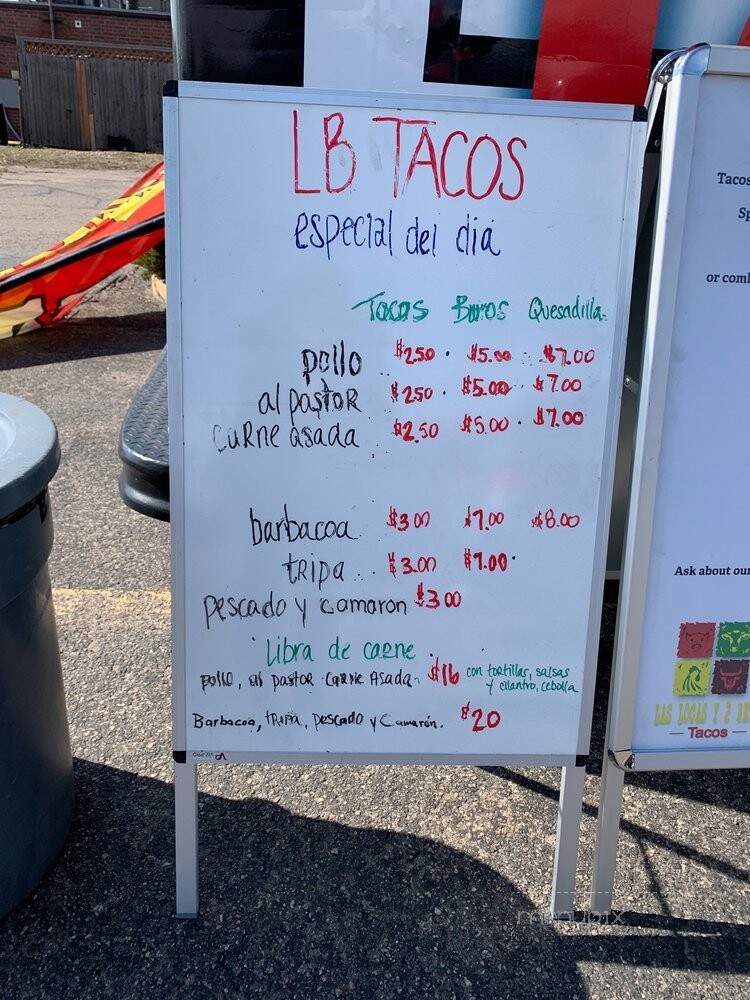 LB TACOS
especial del dia
Tacos Burros Quesadilla.
pollo $2.50 · $5.00 · $7.00
al pastor $2.50 · $5.00 · $7.00
carne asada .. $2.50 $5.00 · $7.00
barbacoa $3.00 $7.00 $8.00
tripa .. $3.00 $7.00 ·
pescado y camaron $3.00
Libra de carne .
pollo, al pastor carne Asada. $16 con tortillas, salsas
y cilantro, cebolla
Barbacoa, tripa, pescado y Camarón. $20
Tacos
or com
Ask about our
— Tacos —